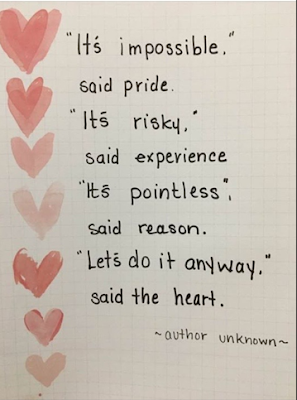 "It's impossible,"
said pride.
"It's risky,"
said experience
"It's pointless",
said reason.
"Let's do it anyway,"
said the heart.
~author unknown~